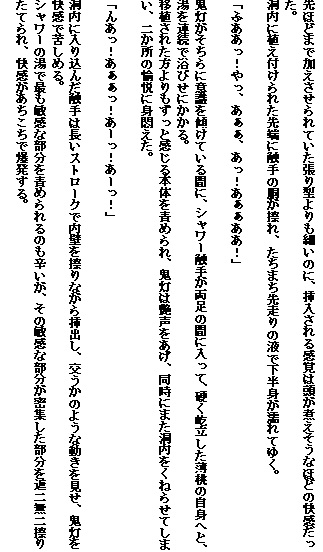 先ほどまで加えさせられていた張り型よりも細いのに、挿入される感覚は頭が煮えそうなほどの快感だっ
た。
洞内に植え付けられた先端に触手の胴が擦れ、たちまち先走りの液で下半身が濡れてゆく。
「ふああっ！やっ、あぁぁ、あっ！あぁぁああ！」
鬼灯がそちらに意識を傾けている間に、シャワー触手が両足の間に入って、硬く屹立した薄桃の自身へと、
湯を連続で浴びせにかかる。
移植された方よりもずっと感じる本体を責められ、鬼灯は艶声をあげ、同時にまた洞内をくねらせてしま
い、二か所の愉悦に身悶えた。
「んあっ！あぁぁっ！あーっ！あーっ！」
洞内に入り込んだ触手は長いストロークで内壁を擦りながら挿出し、交うかのような動きを見せ、鬼灯を
快感で苦しめる。
シャワーの湯で最も敏感な部分を責められるのも辛いが、その敏感な部分が密集した部分を遮二無二擦り
たてられ、快感があちこちで爆発する。